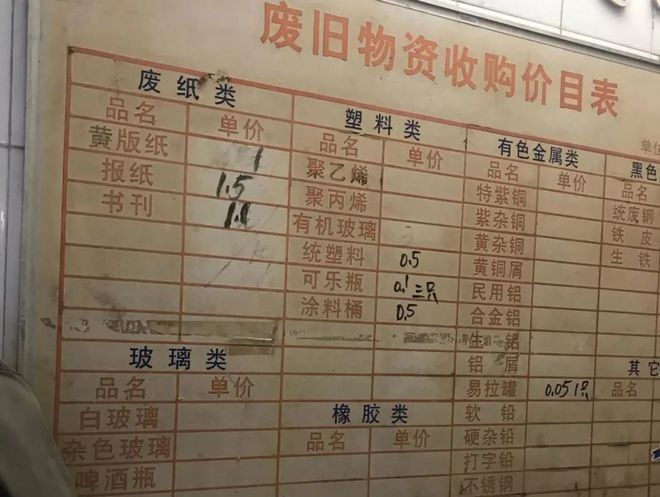 废旧物资收购价目表
单位
废纸类
品名 单价
黄版纸 1
报纸 1.5
书刊 1.1
玻璃类
品名 单价
白玻璃
杂色玻璃
啤酒瓶
塑料类
品名 单价
聚乙烯
聚丙烯
有机玻璃
统塑料 0.5
可乐瓶 0.1 三只
涂料桶 0.5
橡胶类
品名 单价
有色金属类
品名 单价
特紫铜
紫杂铜
黄杂铜
黄铜屑
民用铝
合金铝
生铝
铝屑
易拉罐 0.05 1只
软铅
硬杂铅
打字铅
不锈钢
黑色
品名
统废钢
铁皮
生铁
其它
品名